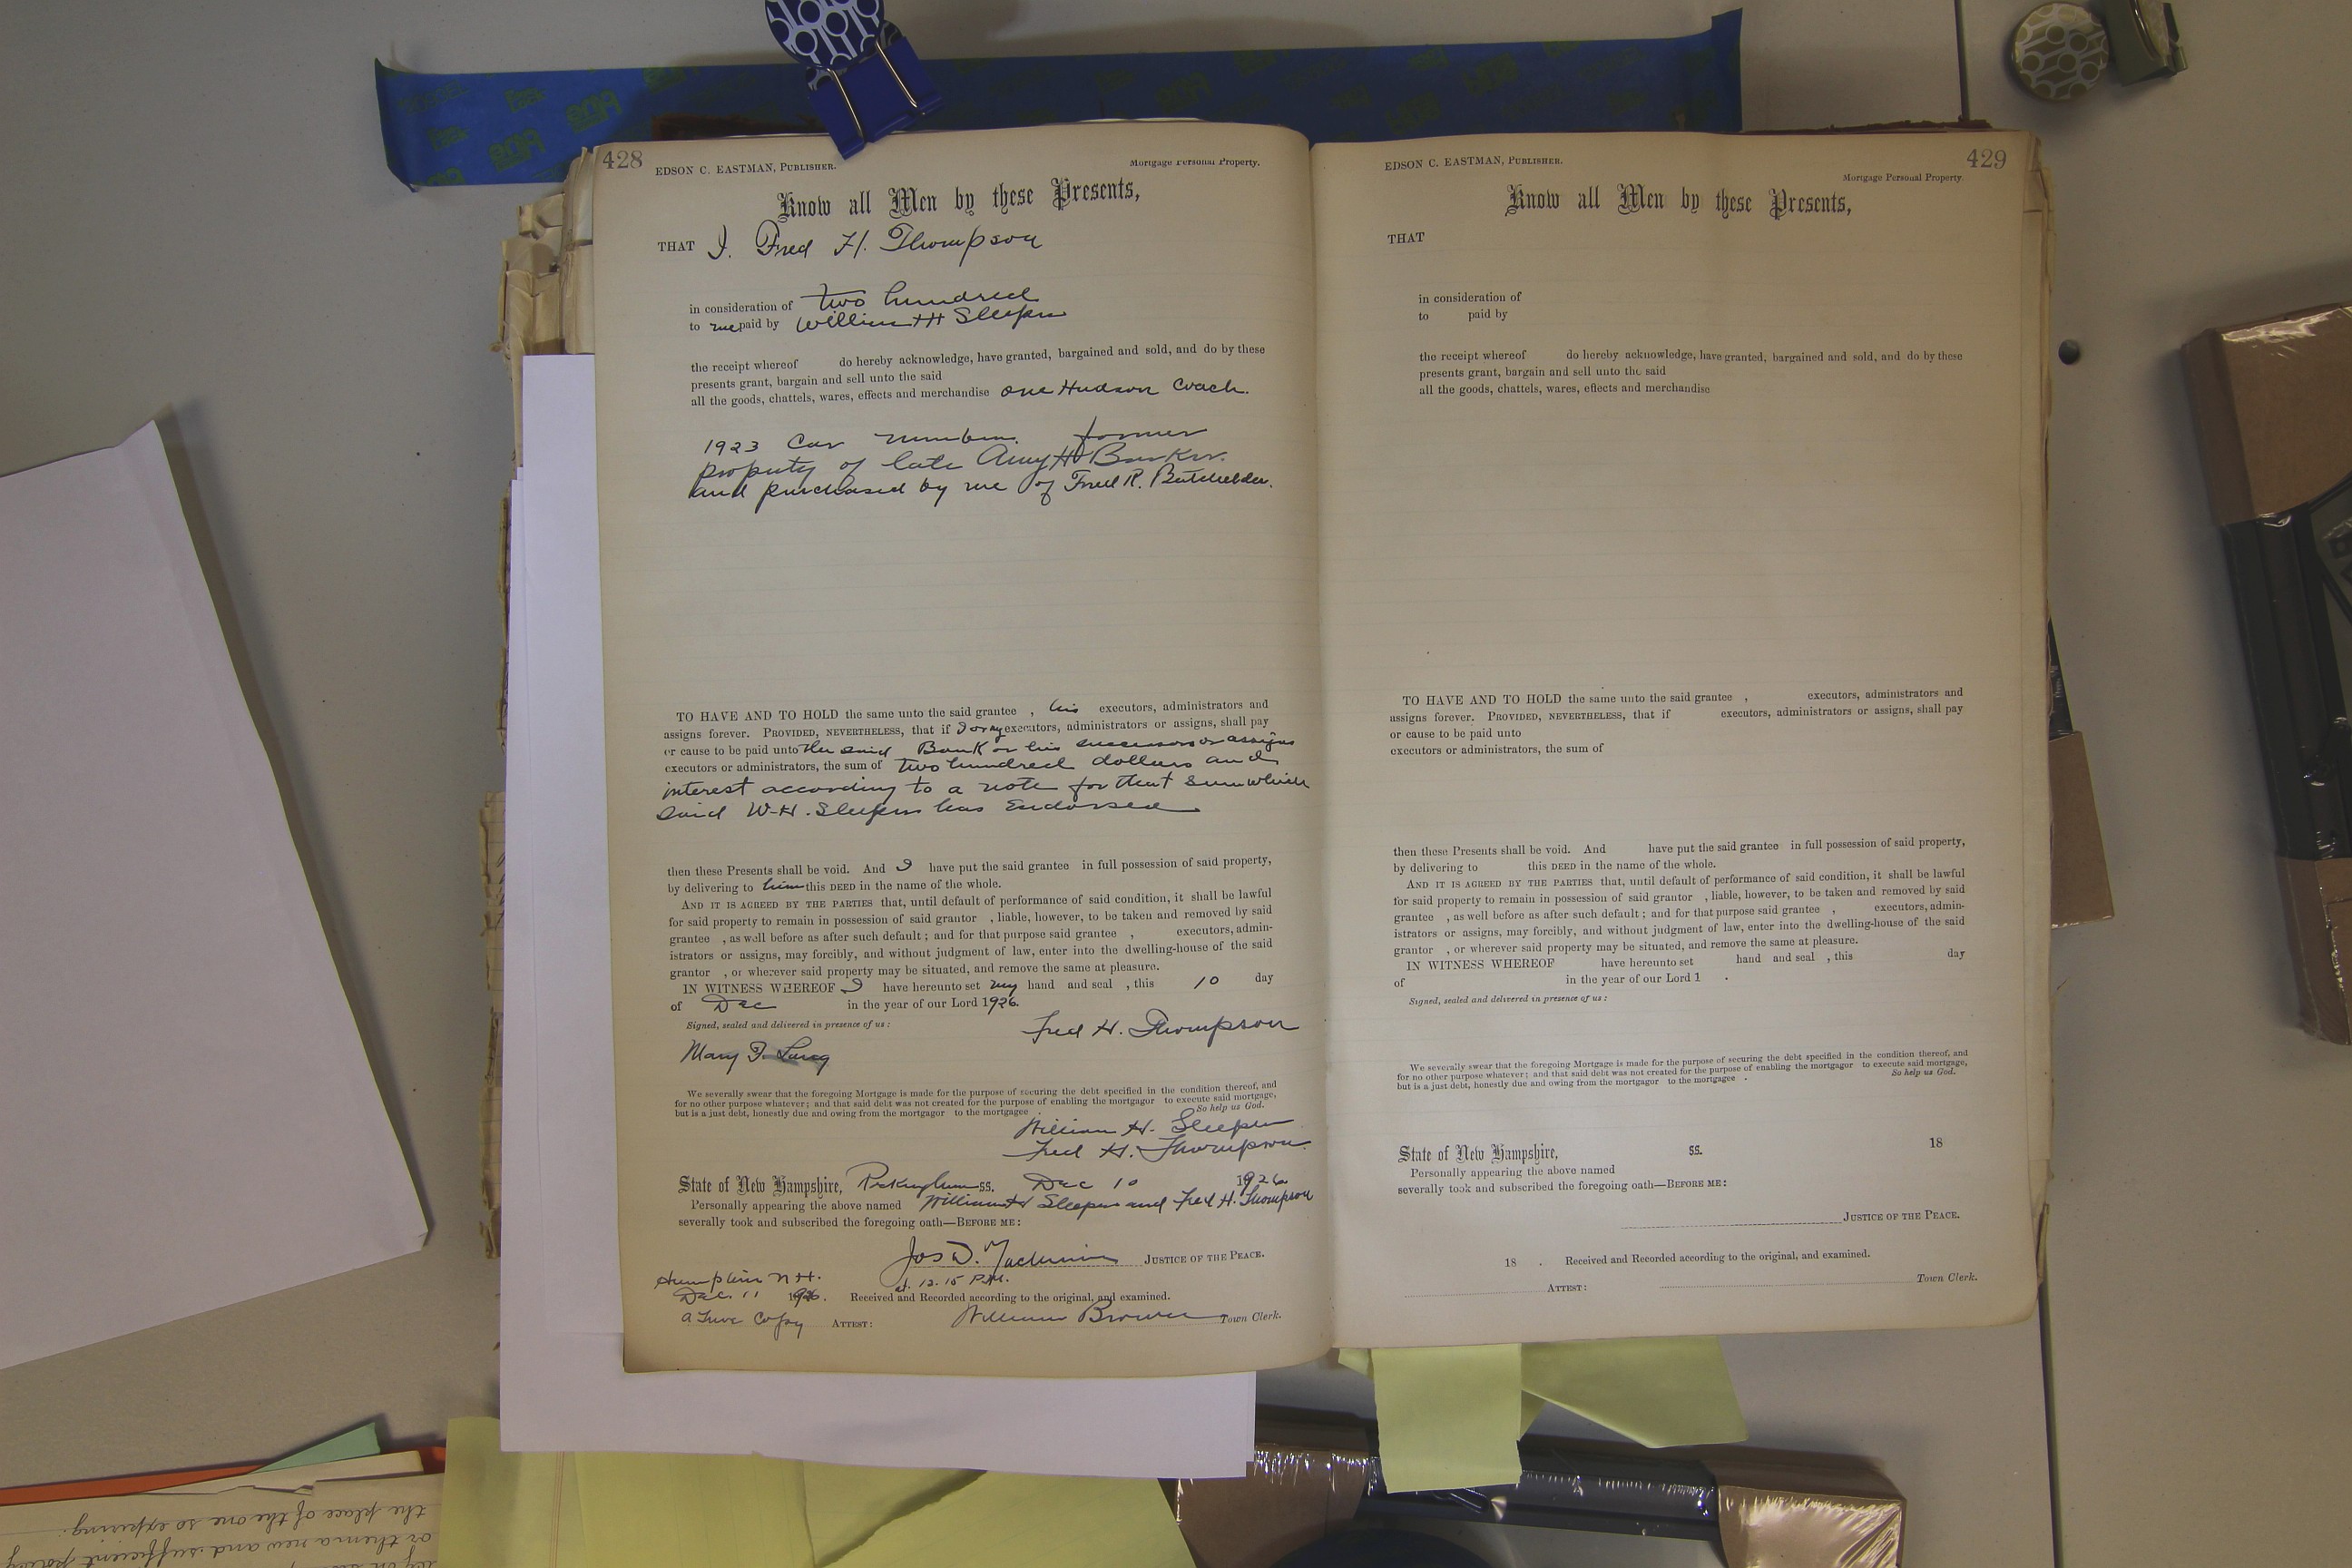 428
EDSON C. EASTMAN, PUBLISHER.
Mortgage Personal Property.
Know all Men by these Presents,
THAT I. Fred H. Thompson
in consideration of two hundred
to me paid by William H Sleeper
the receipt whereof do hereby acknowledge, have granted, bargained and sold, and do by these
presents grant, bargain and sell unto the said
all the goods, chattels, wares, effects and merchandise one Hudson Coach.
1923 Car number. former
property of late Amy H Barker.
and purchased by me of Fred R. Batchelder.
TO HAVE AND TO HOLD the same unto the said grantee , his executors, administrators and
assigns forever. PROVIDED, NEVERTHELESS, that if I or my executors, administrators or assigns, shall pay
or cause to be paid unto the said Bank or his successors or assigns
executors or administrators, the sum of two hundred dollars and
interest according to a note for that sum which
said W-H. Sleeper has Endorsed
then these Presents shall be void. And I have put the said grantee in full possession of said property,
by delivering to him this DEED in the name of the whole.
AND IT IS AGREED BY THE PARTIES that, until default of performance of said condition, it shall be lawful
for said property to remain in possession of said grantor , liable, however, to be taken and removed by said
grantee , as well before as after such default ; and for that purpose said grantee , executors, admin-
istrators or assigns, may forcibly, and without judgment of law, enter into the dwelling-house of the said
grantor , or wherever said property may be situated, and remove the same at pleasure.
IN WITNESS WHEREOF I have hereunto set my hand and seal , this 10 day
of Dec in the year of our Lord 1926.
Signed, sealed and delivered in presence of us :
Fred H. Thompson
Mary F.
We severally swear that the foregoing Mortgage is made for the purpose of securing the debt specified in the condition thereof, and
for no other purpose whatever ; and that said debt was not created for the purpose of enabling the mortgagor to execute said mortgage,
but is a just debt, honestly due and owing from the mortgagor to the mortgagee . So help us God.
William H. Sleeper
Fred H. Thompson
State of New Hampshire, Rockingham ss. Dec 10 1926
Personally appearing the above named William H Sleeper and Fred H. Thompson
severally took and subscribed the foregoing oath—BEFORE ME :
Jos D. JUSTICE OF THE PEACE.
N H. at 12.15 P.M.
Dec. 11 1926. Received and Recorded according to the original, and examined.
a True Copy ATTEST : William Brown Town Clerk.
429
EDSON C. EASTMAN, PUBLISHER.
Mortgage Personal Property.
Know all Men by these Presents,
THAT
in consideration of
to paid by
the receipt whereof do hereby acknowledge, have granted, bargained and sold, and do by these
presents grant, bargain and sell unto the said
all the goods, chattels, wares, effects and merchandise
TO HAVE AND TO HOLD the same unto the said grantee , executors, administrators and
assigns forever. PROVIDED, NEVERTHELESS, that if executors, administrators or assigns, shall pay
or cause to be paid unto
executors or administrators, the sum of
then these Presents shall be void. And have put the said grantee in full possession of said property,
by delivering to this DEED in the name of the whole.
AND IT IS AGREED BY THE PARTIES that, until default of performance of said condition, it shall be lawful
for said property to remain in possession of said grantor , liable, however, to be taken and removed by said
grantee , as well before as after such default ; and for that purpose said grantee , executors, admin-
istrators or assigns, may forcibly, and without judgment of law, enter into the dwelling-house of the said
grantor , or wherever said property may be situated, and remove the same at pleasure.
IN WITNESS WHEREOF have hereunto set hand and seal , this day
of in the year of our Lord 1 .
Signed, sealed and delivered in presence of us :
We severally swear that the foregoing Mortgage is made for the purpose of securing the debt specified in the condition thereof, and
for no other purpose whatever ; and that said debt was not created for the purpose of enabling the mortgagor to execute said mortgage,
but is a just debt, honestly due and owing from the mortgagor to the mortgagee . So help us God.
State of New Hampshire, ss. 18
Personally appearing the above named
severally took and subscribed the foregoing oath—BEFORE ME :
JUSTICE OF THE PEACE.
18 . Received and Recorded according to the original, and examined.
ATTEST : Town Clerk.
the place of the one so expiring.
or them a new and sufficient policy